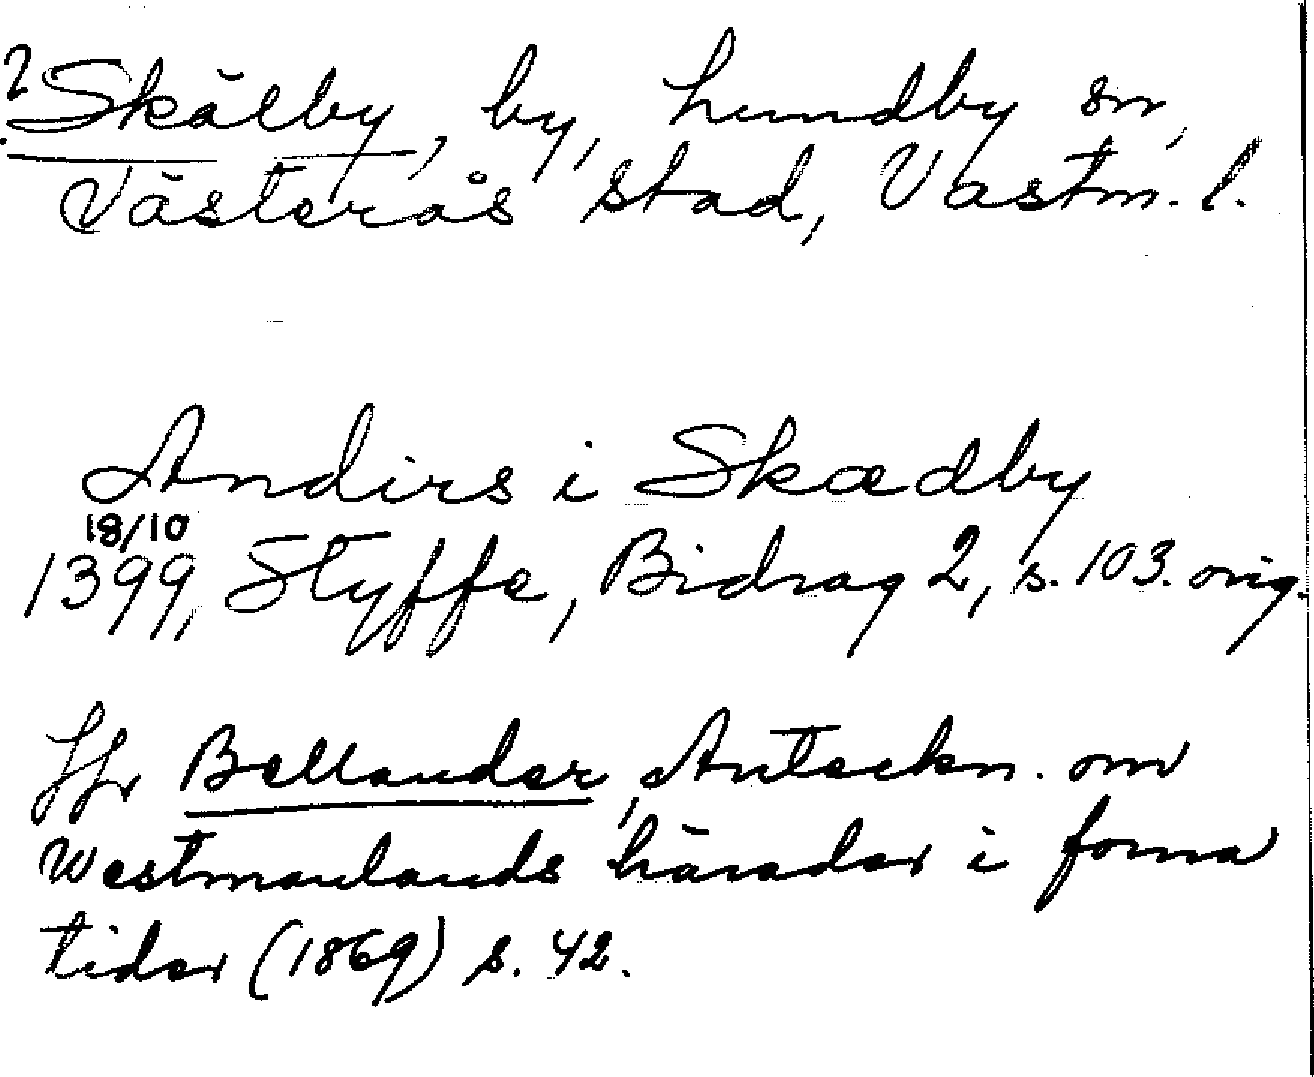 ? Skälby, by, Lundby sn,
Västerås stad, Västm. l.
Andirs i Skædby
18/10
1399, Styffe, Bidrag 2, s. 103. orig.
Jfr Bellander, Anteckn. om
Westmanlands härader i forna
tider (1869) s. 42.